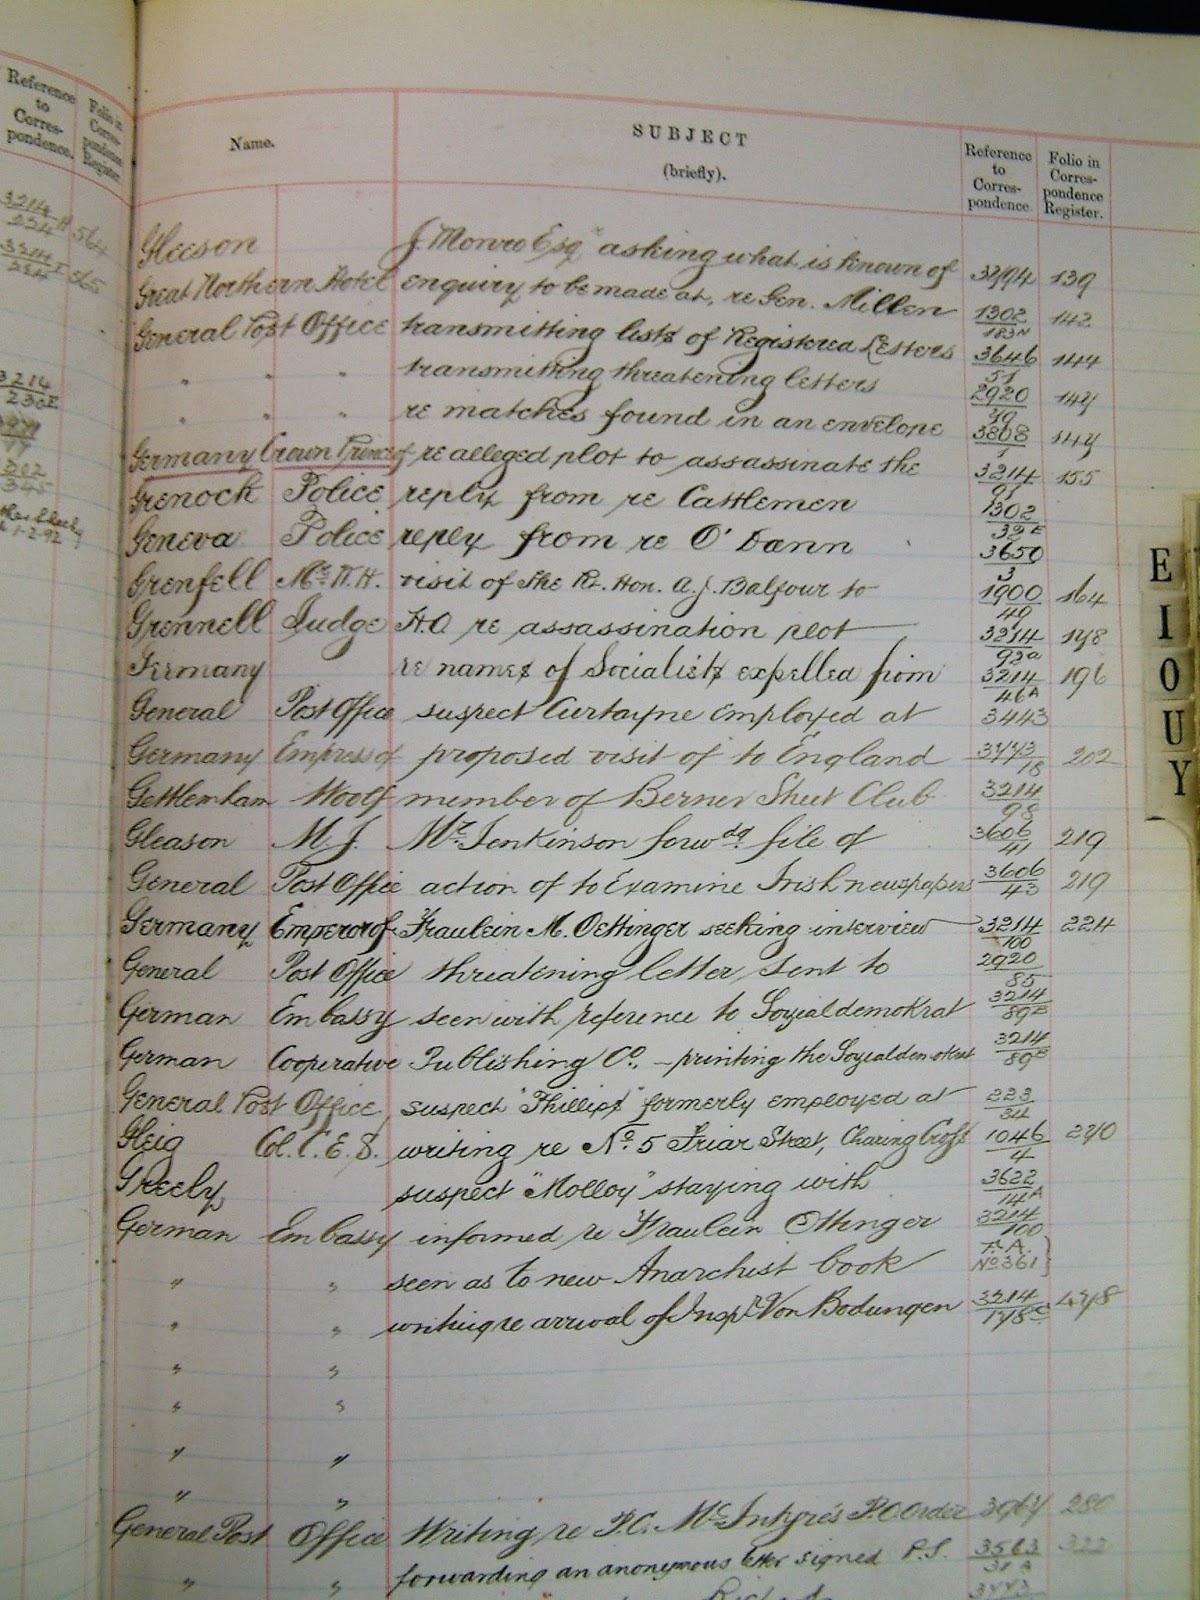 Reference to Corres- pondence. Folio in Corres- pondence Register.
Name. SUBJECT (briefly). Reference to Corres- pondence Folio in Corres- pondence Register.
Gleeson J. Monro Esq asking what is known of 32/94 139
Great Northern Hotel enquiry to be made at, re Gen. Millen 1302/183N 142
General Post Office transmitting lists of Registered Letters 3646/51 144
" " " transmitting threatening letters 2920/39 147
" " " re matches found in an envelope 3808/1 147
Germany Crown Prince of re alleged plot to assassinate the 3214/91 155
Grenock Police reply from re Cattlemen 1302/32E
Geneva Police reply from re O'Dann 3650/3
Grenfell Mr. W.H. visit of The Rt. Hon. A.J. Balfour to 1900/49 164
Grennell Judge H.O re assassination plot 3214/92a 178
Germany re names of Socialists expelled from 3214/46A 196
General Post Office suspect Curtayne employed at 3443
Germany Empress of proposed visit of to England 3773/18 202
Gettlenham Woolf member of Berner Street Club 3214/98
Gleason M. J. Mr. Jenkinson forwdg. file of 3606/41 219
General Post Office action of to Examine Irish newspapers 3606/43 219
Germany Emperor of Fraulein M. Oettinger seeking interview 3214/100 224
General Post Office threatening letter, sent to 2920/85
German Embassy seen with reference to Sozialdemokrat 3214/89B
German Cooperative Publishing Co. – printing the Sozialdemokrat 3214/89B
General Post Office, suspect "Phillips" formerly employed at 223/34
Gleig Col. C. E. S. writing re No. 5 Friar Street, Charing Cross 1046/4 270
Greely suspect "Molloy" staying with 3622/14A
German Embassy informed re Fraulein Ottinger 3214/100
" " seen as to new Anarchist book F.A. No 361
" " writing re arrival of Inspr. Von Bodungen 3214/178c 478
" "
" "
" "
" "
General Post Office Writing re P.C. McIntyre's P.O Order 3967 280
" " forwarding an anonymous letter signed P.S. 3563/31A 322
E
I
O
U
Y